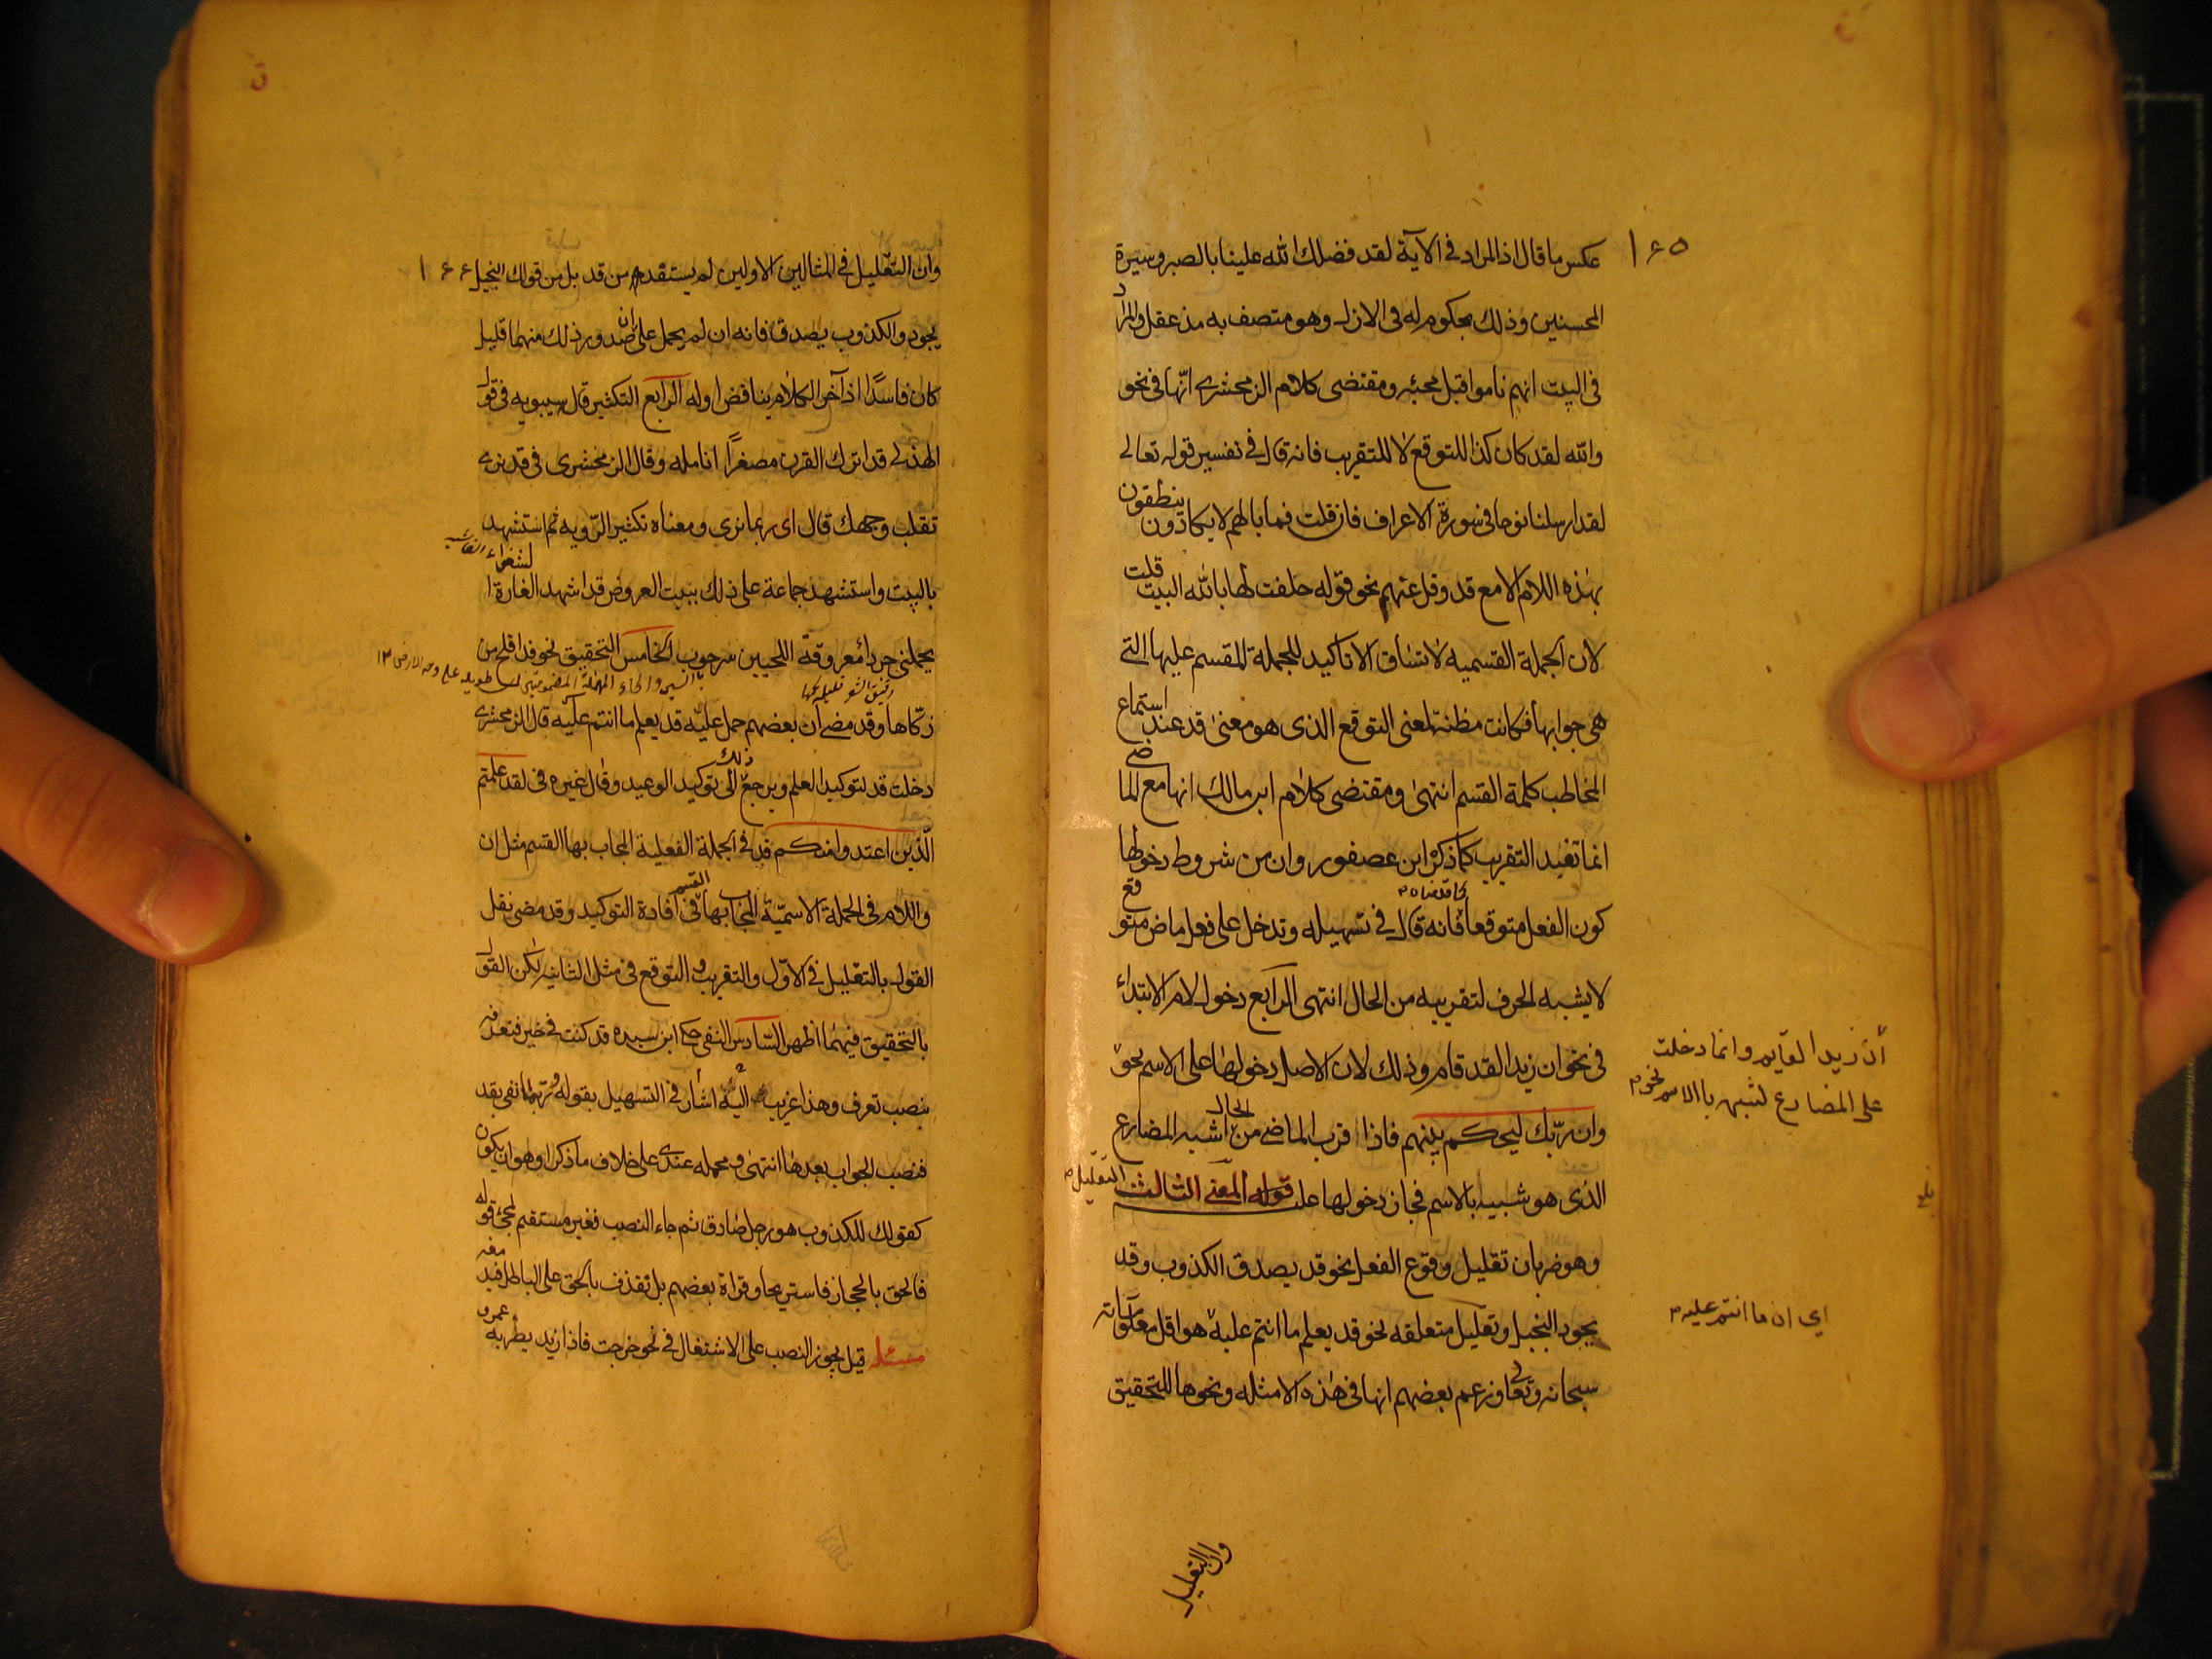 ١٦٥
عكس ما قال اذ المراد فى الاية لقد فضلك الله علينا بالصبر وسيرة
المحسنين وذلك محكوم له فى الازل وهو متصف به مذ عقل والمراد
فى البيت انهم ناموا قبل مجيئه ومقتضى كلام الزمخشرى انها فى نحو
والله لقد كان كذا للتوقع لا للتقريب فانه قال فى تفسير قوله تعالى
لقد ارسلنا نوحا فى سورة الاعراف فان قلت فما بالهم لا يكادون ينطقون
بهذه اللام الا مع قد وقل عنهم نحو قوله حلفت لها بالله البيت قلت
لان الجملة القسمية لا تساق الا تاكيد للجملة المقسم عليها التى
هى جوابها فكانت مظنة لمعنى التوقع الذى هو معنى قد عند استماع
المخاطب كلمة القسم انتهى ومقتضى كلام ابن مالك انها مع الماضى
انما تفيد التقريب كما ذكر ابن عصفور وان من شروط دخولها
كون الفعل متوقعا كما قدمناه فانه قال فى تسهيله وتدخل على فعل ماض متوقع
لا يشبه الحرف لتقريبه من الحال انتهى الرابع دخول لام الابتداء
فى نحو ان زيدا لقد قام وذلك لان الاصل دخولها على الاسم نحو
ان زيدا لقايم وانما دخلت
على المضارع لشبهه بالاسم نحو
وان ربك ليحكم بينهم فاذا قرب الماضى من الحال اشبه المضارع
الذى هو شبيه بالاسم فجاز دخولها عليه قوله المعنى الثالث التقليل
وهو ضربان تقليل وقوع الفعل نحو قد يصدق الكذوب وقد
يجود البخيل وتقليل متعلقه نحو قد يعلم ما انتم عليه هو اقل معلوماته
اى ان ما انتم عليه
سبحانه وتعالى وزعم بعضهم انها فى هذه الامثله ونحوها للتحقيق
وان التقليل
وان التقليل فى المثالين الاولين لم يستفد من قد بل من قولك البخيل ١٦٦
يجود والكذوب يصدق فانه ان لم يحمل على ان صدور ذلك منهما قليل
كان فاسدا اذ آخر الكلام يناقض اوله الرابع التكثير قال سيبويه فى قول
الهذلى قد اترك القرن مصفرا انامله وقال الزمخشرى فى قد نرى
تقلب وجهك قال اى ربما نرى ومعناه تكثير الروية ثم استشهد
بالبيت واستشهد جماعة على ذلك ببيت العروض قد اشهد الغارة الشعواء
يحملنى جرداء معروقة اللحيين سرحوب الخامس التحقيق نحو قد افلح من
زكاها وقد مضى ان بعضهم حمل عليه قد يعلم ما انتم عليه قال الزمخشرى
دخلت قد لتوكيد العلم ويرجع ذلك الى توكيد الوعيد وقال غيره فى لقد علمتم
الذين اعتدوا منكم قد فى الجملة الفعلية المجاب بها القسم مثل ان
واللام فى الجملة الاسمية المجاب بها القسم فى افادة التوكيد وقد مضى نقل
القول بالتقليل فى الاول والتقريب والتوقع فى مثل الثانيه لكن القول
بالتحقيق فيهما اظهر السادس النفى حكى ابن سيده قد كنت فى خير فتعرفه
بنصب تعرف وهذا غريب واليه اشار فى التسهيل بقوله وربما نفى بقد
فنصب الجواب بعدها انتهى ومحمله عندى على خلاف ما ذكر وهو ان يكون
كقولك للكذوب هو رجل صادق ثم جاء النصب فغير مستقيم لمجئ قوله
فالحق بالحجاز فاستريحا وقراة بعضهم بل نقذف بالحق على الباطل فيدمغه
مسئله قيل يجوز النصب على الاشتغال فى نحو خرجت فاذا زيد يضربه عمرو